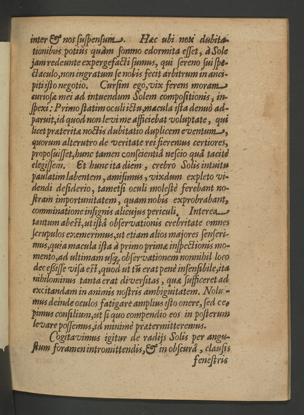 inter & nos suspensum. Hac ubi nox dubita-
tionibus potius quàm somno edormita esset, à Sole
jam redeunte expergefacti sumus, qui sereno sui spe-
ctaculo, non ingratum se nobis fecit arbitrum in anci-
piti isto negotio. Cursim ego, vix ferens moram
curiosa mei ad intuendum Solem compositionis, in-
spexi: Primo statim oculi ictu, macula ista denuò ad-
paruit, id quod non levi me afficiebat voluptate, qui
licet præterita noctis dubitatio duplicem eventum,
quorum alterutro de veritate rei fieremus certiores,
proposuisset, hunc tamen conscientiâ nescio quâ tacitè
elegissem. Et hunc ita diem, crebro Solis intuitu
paulatim labentem, amisimus, vixdum expleto vi-
dendi desiderio, tametsi oculi molestè ferebant no-
stram importunitatem, quam nobis exprobrabant,
comminatione insignis alicujus periculi. Interea
tantum abest, ut istâ observationis crebritate omnes
scrupulos exemerimus, ut etiam alios majores senseri-
mus, quia macula ista à primo primæ inspectionis mo-
mento, ad ultimam usq; observationem nonnihil loco
decessisse visa est, quod ut tũ erat penè insensibile, ita
nihilominus tanta erat diversitas, quæ sufficeret ad
excitandam in animis nostris ambiguitatem. Nolui-
mus deinde oculos fatigare amplius isto onere, sed ce-
pimus consilium, ut si quo compendio eos in posterum
levare possemus, id minimè prætermitteremus.
Cogitavimus igitur de radijs Solis per angu-
stum foramen intromittendis, & in obscurâ, clausis
fenestris